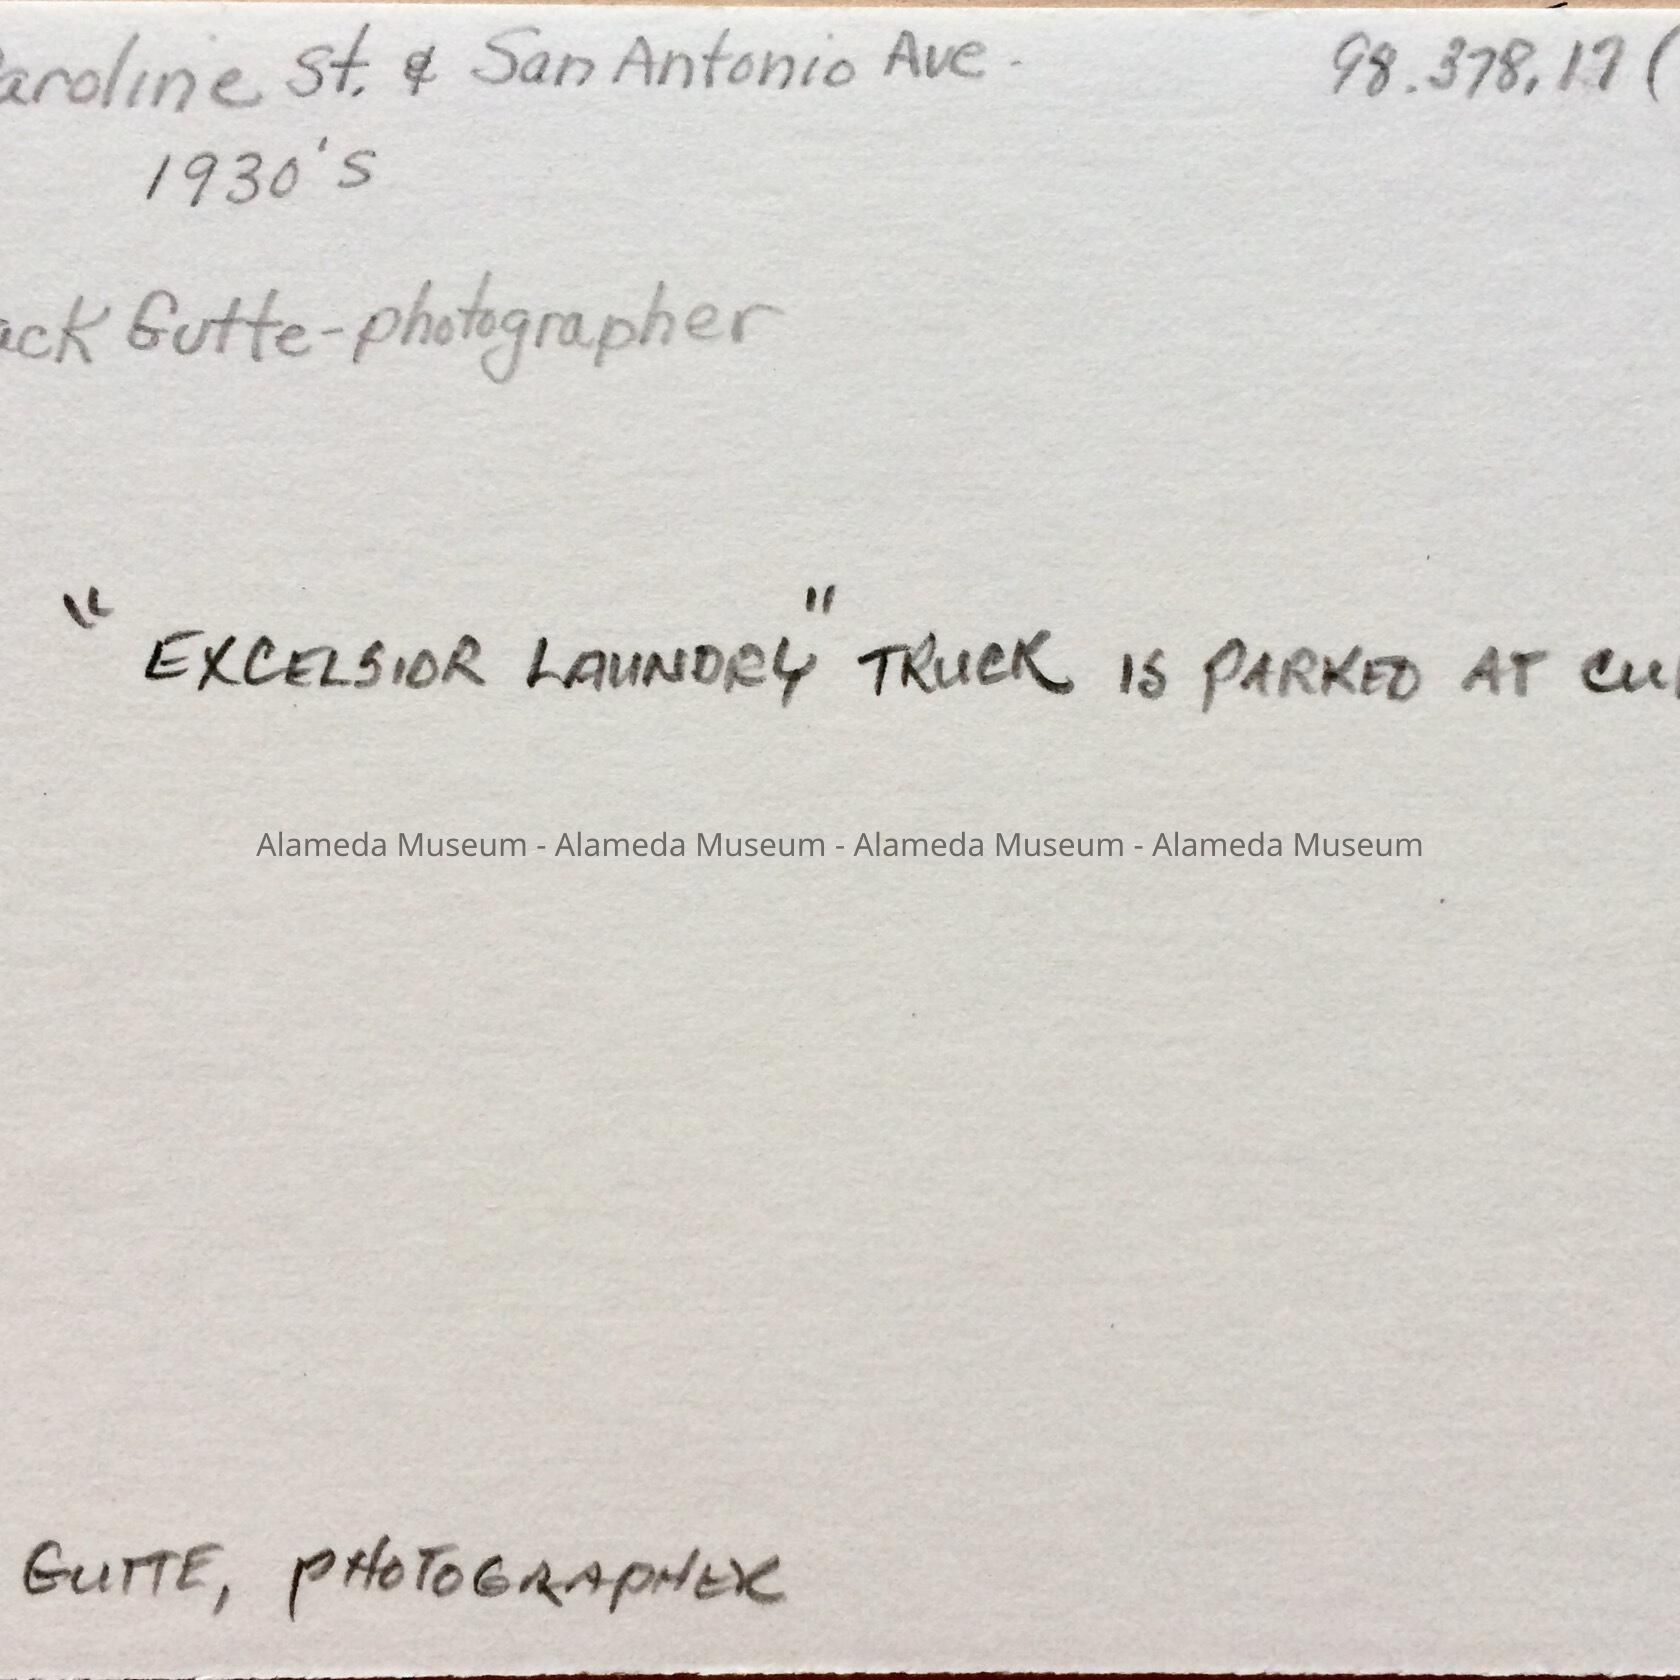 aroline St. & San Antonio Ave. 98.378.17 (
1930's
ack Gutte-photographer
"EXCELSIOR LAUNDRY" TRUCK IS PARKED AT CU
Alameda Museum - Alameda Museum - Alameda Museum - Alameda Museum
GUTTE, PHOTOGRAPHER